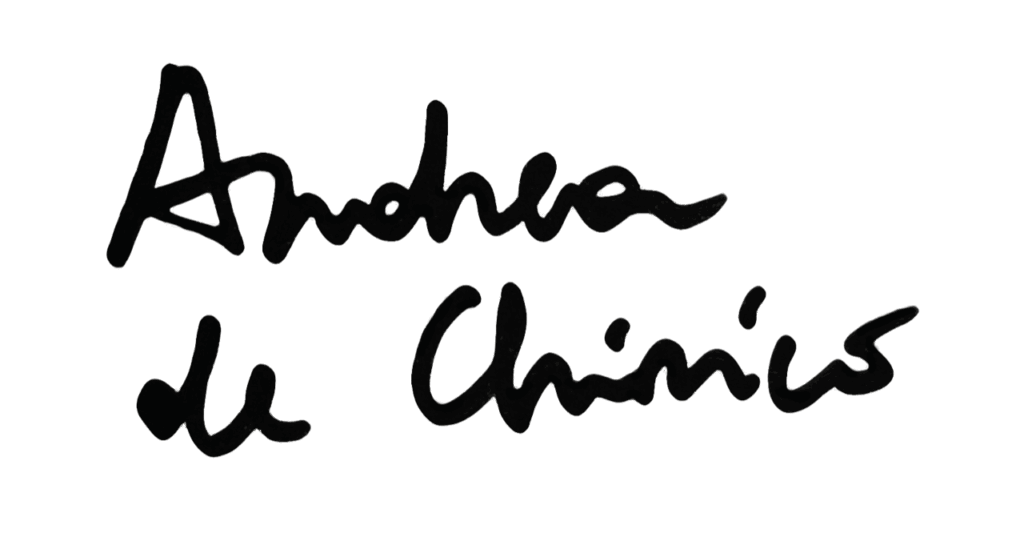 Andrea
de Chirico